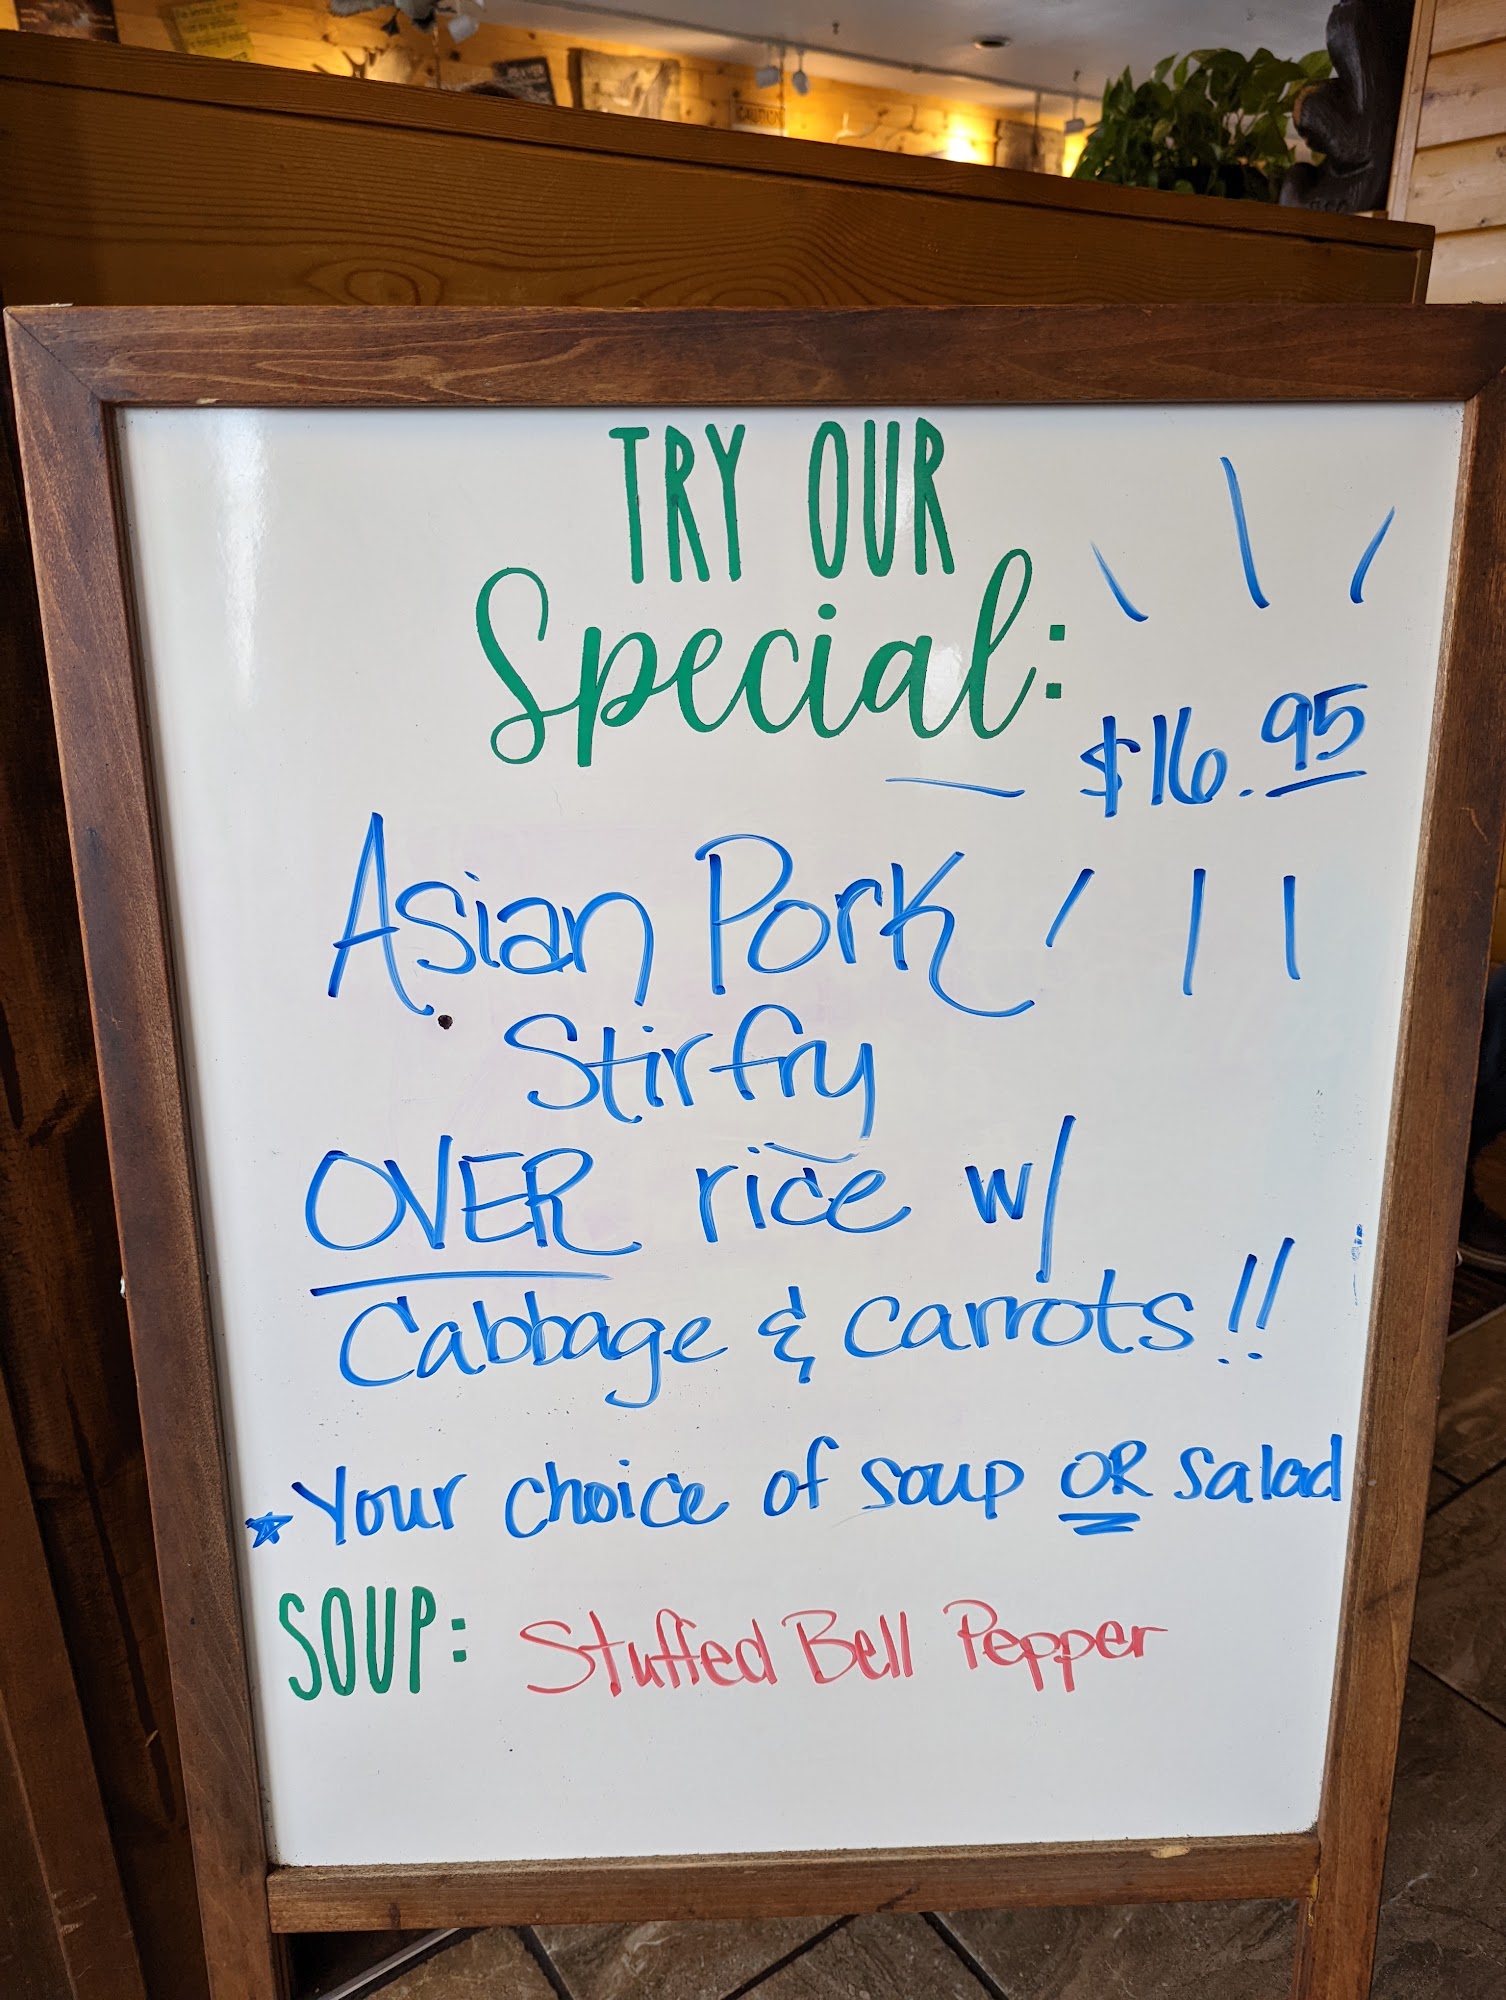 CAUTION
TRY OUR
Special:
$16.95
Asian Pork
Stirfry
OVER rice w/
Cabbage & carrots!!
Your choice of soup OR salad
SOUP: Stuffed Bell Pepper